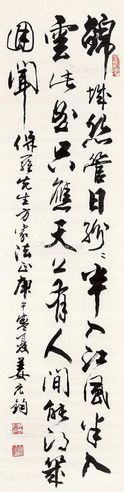 錦城絲管日紛〻半入江風半入
雲此曲只應天上有人間能得幾
回聞 羅先生方家法正庚午夏姜鈞